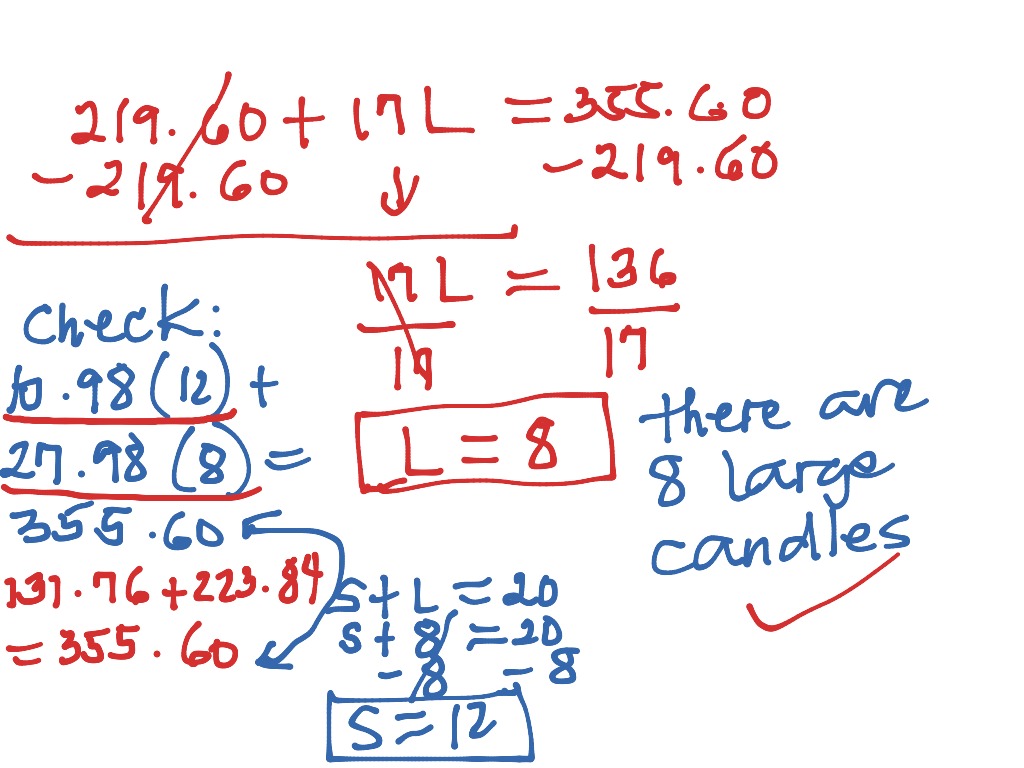 219.60 + 17L = 355.60
- 219.60 ↓ - 219.60
17L = 136
17 17
L = 8
check:
10.98 (12) +
27.98 (8) =
355.60
131.76 + 223.84
= 355.60
S + L = 20
S + 8 = 20
- 8 - 8
S = 12
there are
8 large
candles